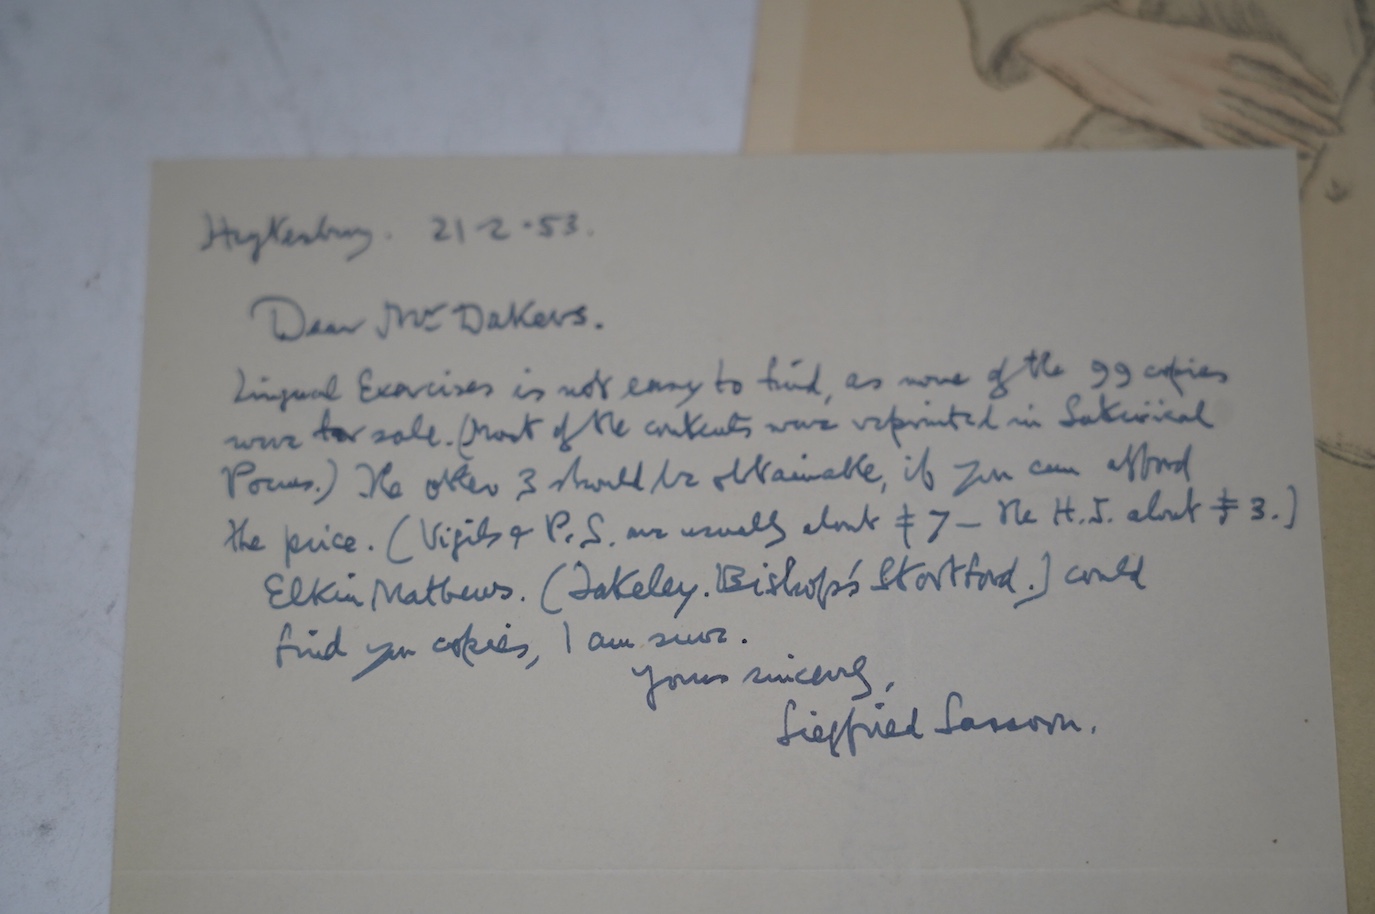 Heytesbury. 21-2-53.
Dear Mr Dakers.
Lingual Exercises is not easy to find, as none of the 99 copies
were for sale. (Most of the contents were reprinted in Satirical
Poems.) The other 3 should be obtainable, if you can afford
the price. (Vigils & P.S. are usually about £7 – the H.J. about £3.)
Elkin Mathews. (Takeley. Bishop's Stortford.) could
find you copies, I am sure.
Yours sincerely,
Siegfried Sassoon.